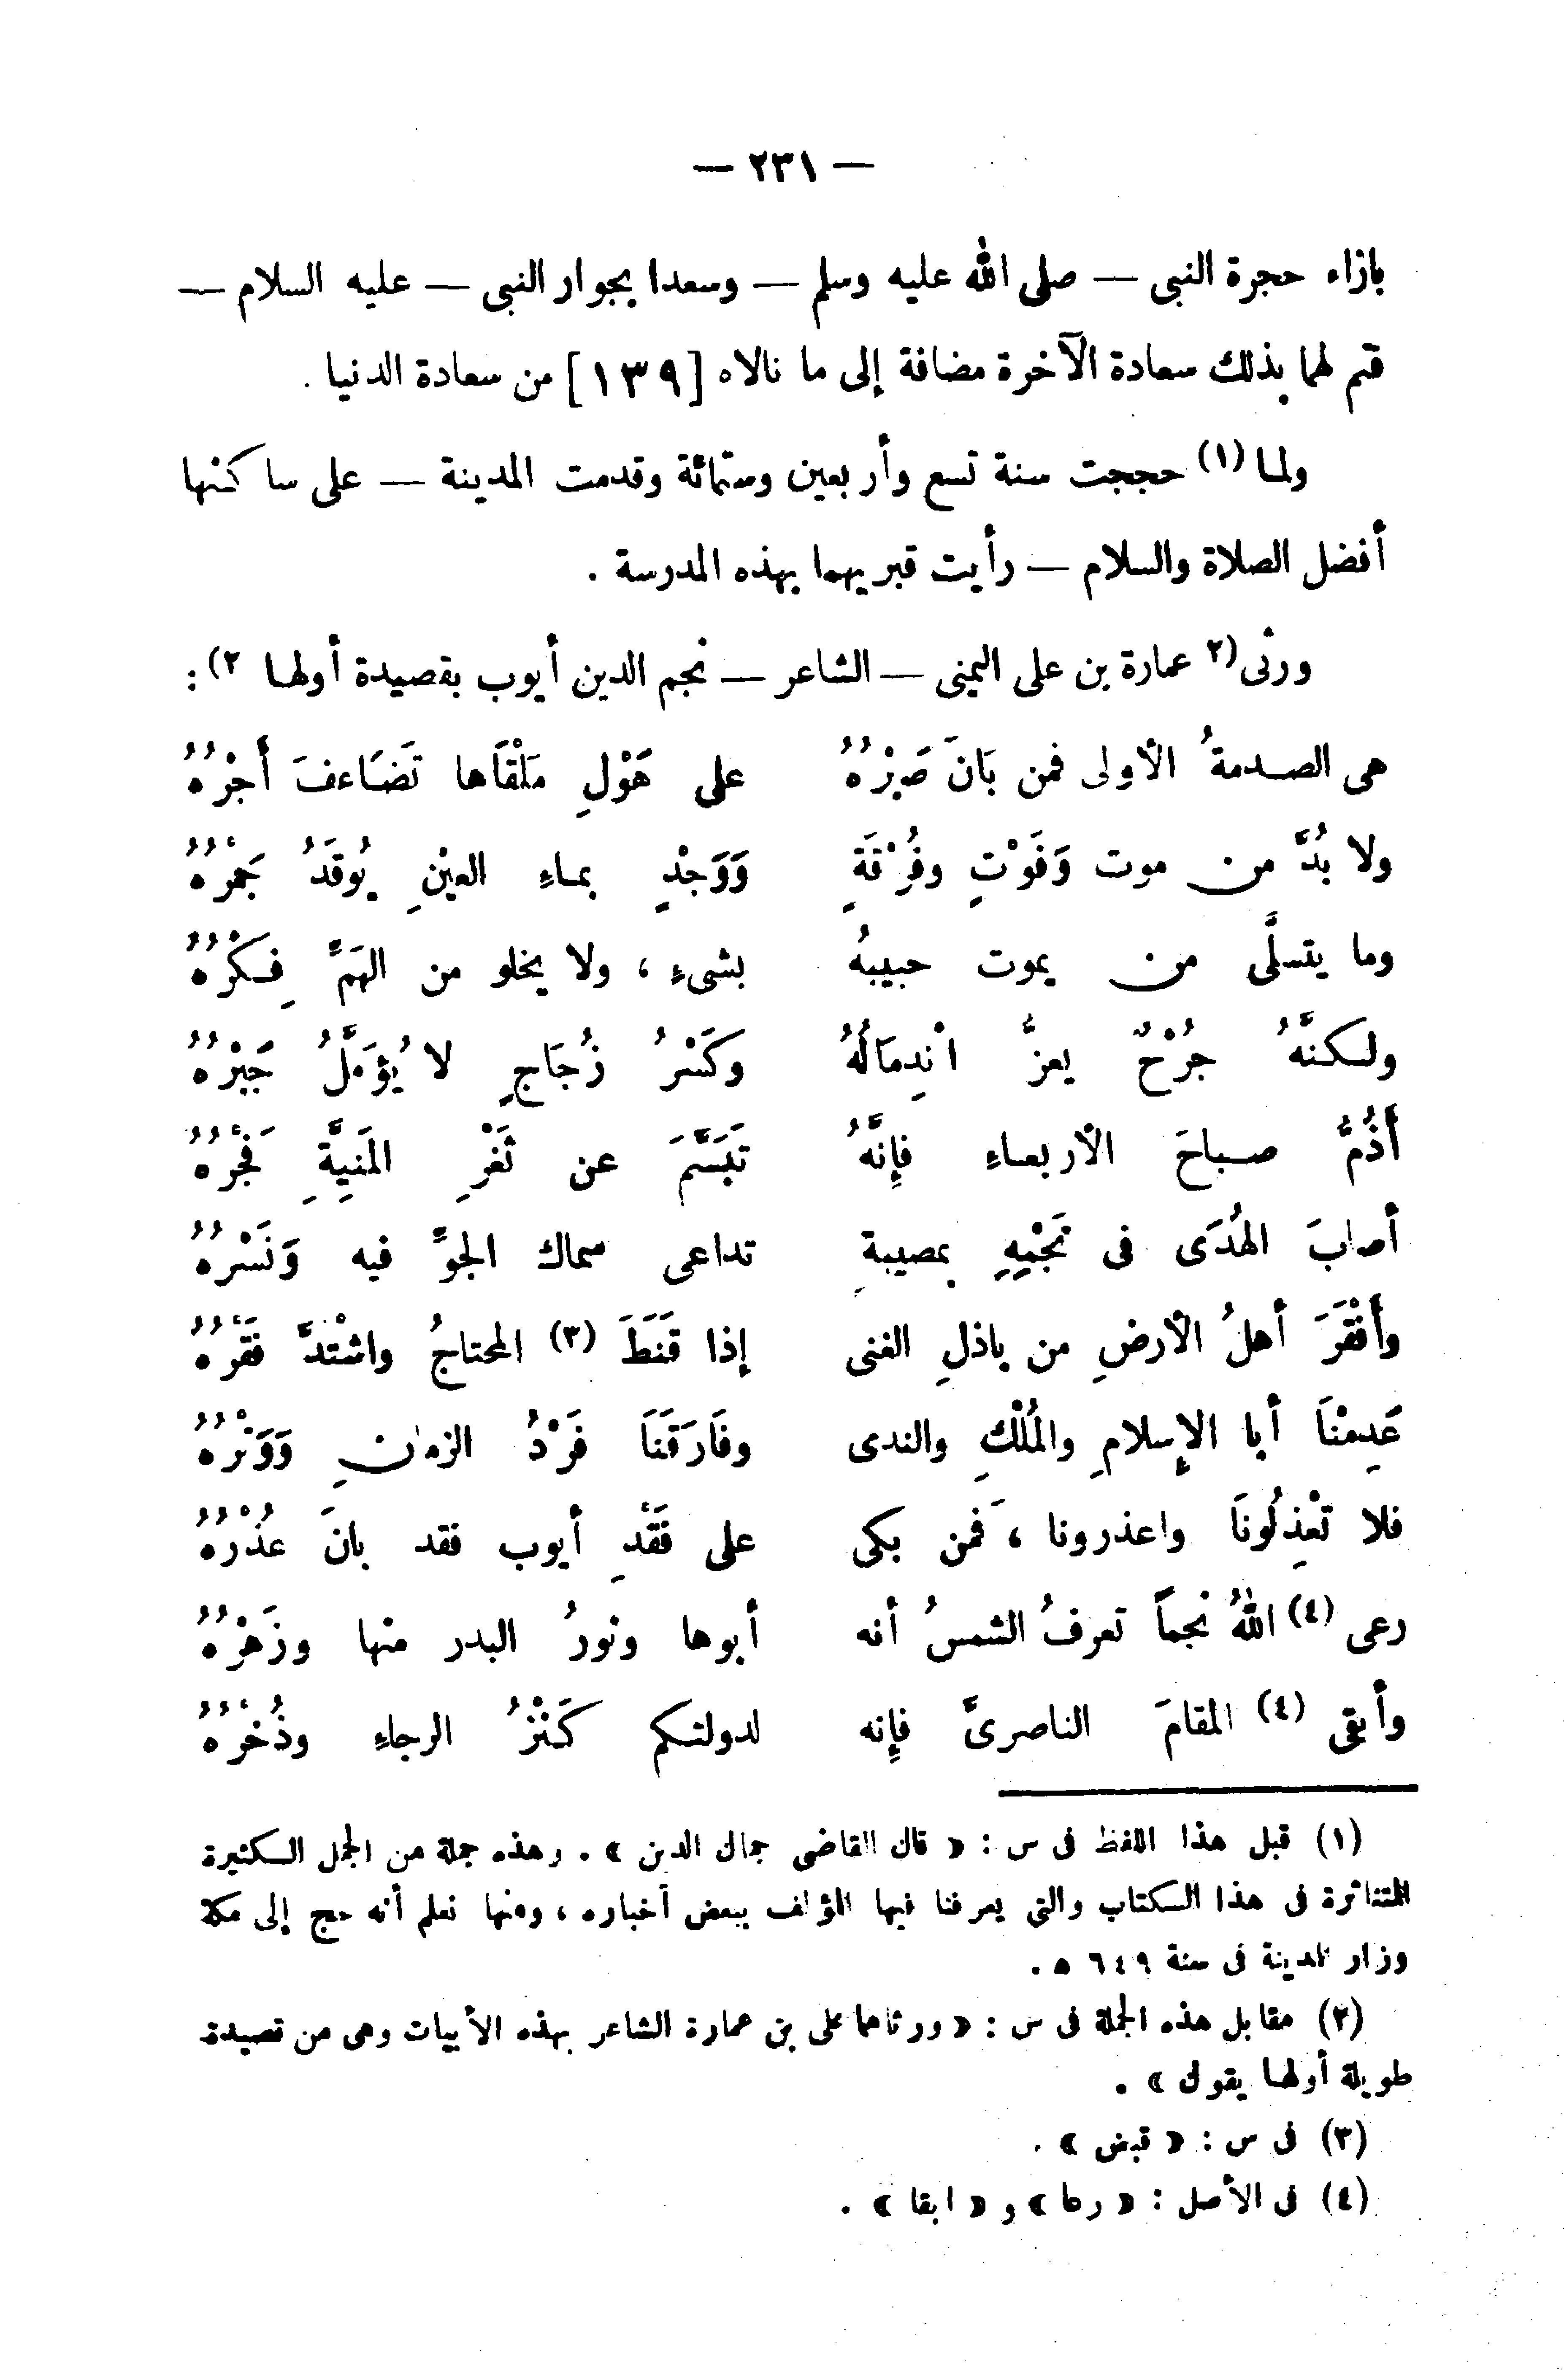 — ٢٣١ —
بإزاء حجرة النبى — صلى الله عليه وسلم — وسعدا بجوار النبى — عليه السلام —
فتم لهما بذلك سعادة الآخرة مضافة إلى ما نالاه [١٣٩] من سعادة الدنيا .
ولما (١) حججت سنة تسع وأربعين وستمائة وقدمت المدينة — على ساكنها
أفضل الصلاة والسلام — رأيت قبريهما بهذه المدرسة .
ورثى (٢ عمارة بن على اليمنى — الشاعر — نجم الدين أيوب بقصيدة أولها ٢) :
هى الصدمةُ الأولى فمن بَانَ صَبْرُهُ على هَوْلِ مَلْقَاها تَضَاعفَ أَجْرُهُ
ولا بُدَّ من موت وَفَوْتٍ وفُرْقَةٍ وَوَجْدٍ بماءِ العيْنِ يُوقَدُ جَمْرُهُ
وما يتسلَّى من يموت حبيبهُ بشىءٍ ، ولا يخلو من الهَمِّ فِكْرُهُ
ولكنَّهُ جُرْحٌ يعزُّ انْدِمَالُهُ وكَسْرُ زُجَاجٍ لا يُؤمَّلُ جَبْرُهُ
أَذُمُّ صباحَ الأربعاءِ فإِنَّهُ تَبَسَّمَ عن ثَغْرِ المَنيِّةِ فَجْرُهُ
أصابَ الهُدَى فى نَجْمِهِ بمصيبةِ تداعى سماك الجوِّ فيه وَنَسْرُهُ
وأَفْقَرَ أهلُ الأرضِ من باذلِ الغنى إذا قَنَطَ (٣) المحتاجُ واشْتدَّ فَقْرُهُ
عَدِمْنَا أبا الإسلامِ والمُلْكِ والندى وفَارَقَنَا فَرْدُ الزمانِ وَوَتْرُهُ
فلا تعْذِلُونَا واعذرونا ، فَمن بكى على فَقْدِ أيوب فقد بانَ عُذْرُهُ
رعى (٤) اللهُ نجماً تعرفُ الشمسُ أنه أبوها ونورُ البدر منها وزَهْرُهُ
وأبقى (٤) المقامَ الناصرىَّ فإنه لدولتكم كَنْزُ الرجاءِ وذُخْرُهُ
(١) قبل هذا اللفظ فى س : « قال القاضى جمال الدين » . وهذه جملة من الجمل الكثيرة
المتناثرة فى هذا الكتاب والتى يعرفنا فيها المؤلف ببعض أخباره ، ومنها نعلم أنه حج إلى مكة
وزار المدينة فى سنة ٦٤٩ ه .
(٢) مقابل هذه الجملة فى س : « ورثاهما على بن عمارة الشاعر بهذه الأبيات وهى من قصيدة
طويلة أولها يقول » .
(٣) فى س : « قبض » .
(٤) فى الأصل : « رعا » و « ابقا » .